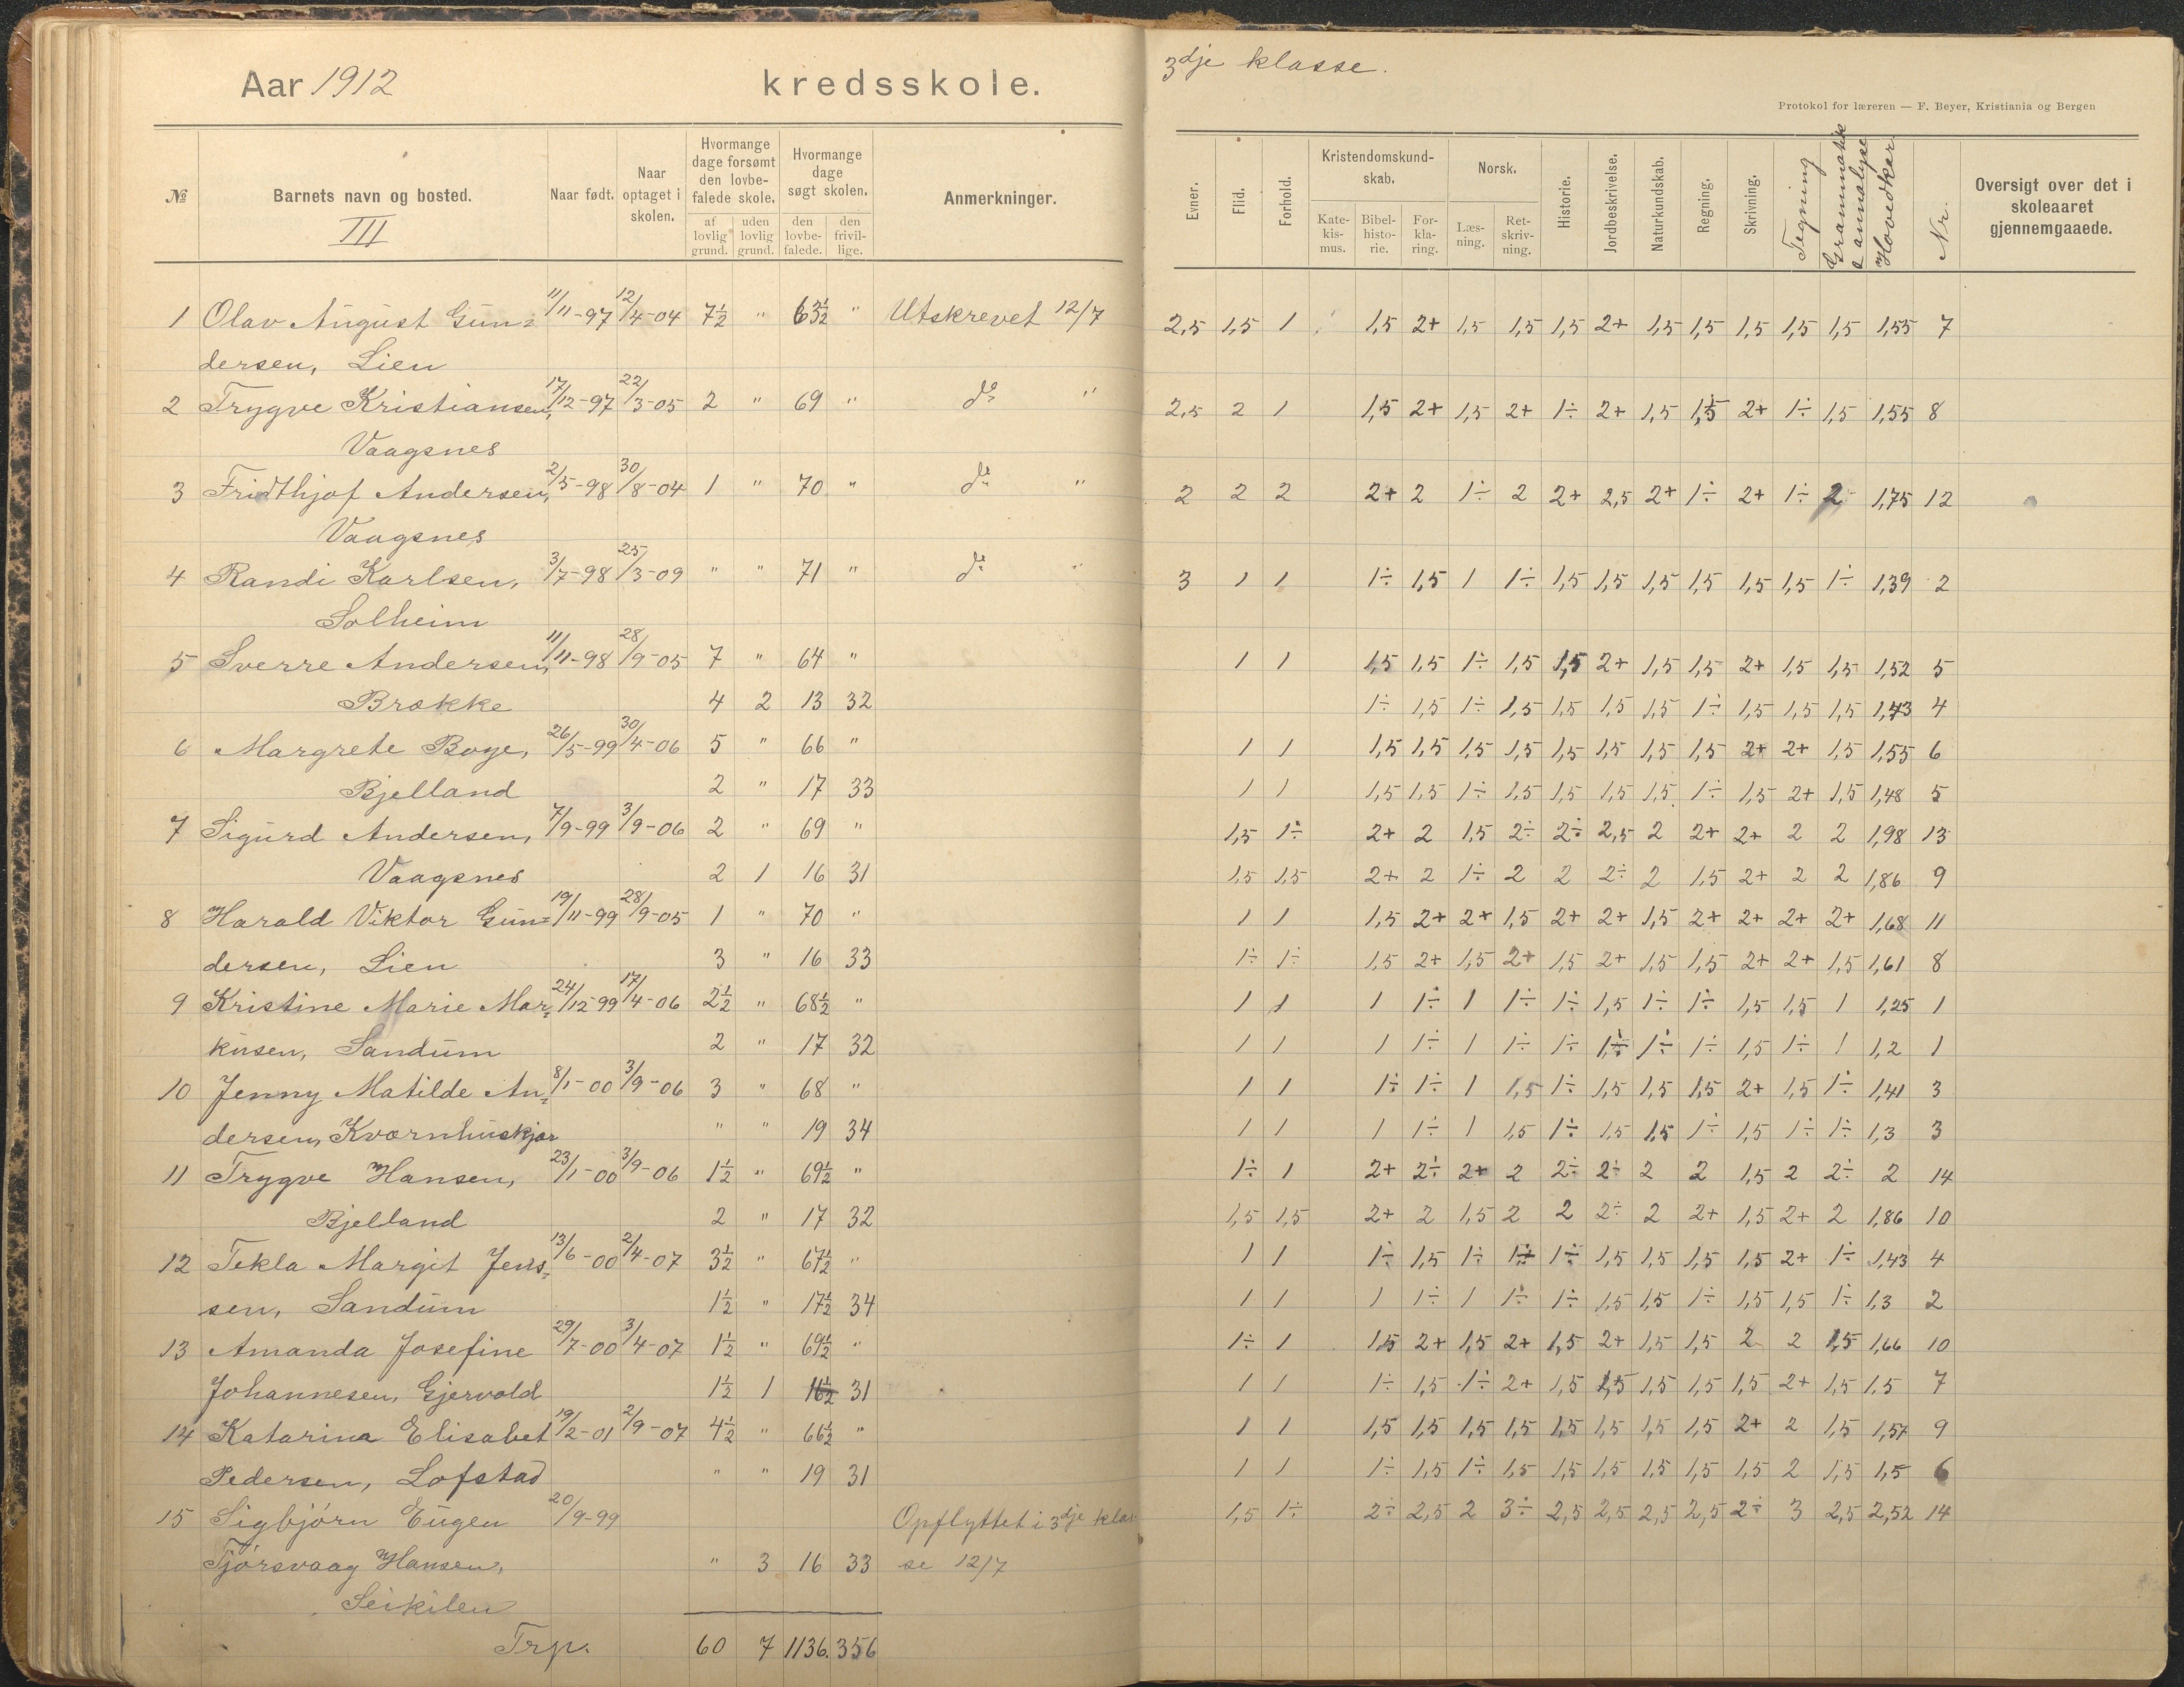 Aar 1912 kredsskole.
№ Barnets navn og bosted. Naar født. Naar optaget i skolen. Hvormange dage forsømt den lovbefalede skole. af lovlig grund. uden lovlig grund. Hvormange dage søgt skolen. den lovbefalede. den frivillige. Anmerkninger.
III
1 Olav August Gun= 11/11-97 12/4-04 7½ " 63½ " Utskrevet 12/7
dersen, Lien
2 Trygve Kristiansen, 17/12-97 22/3-05 2 " 69 " do "
Vaagsnes
3 Fridthjof Andersen, 2/5-98 30/8-04 1 " 70 " do "
Vaagsnes
4 Randi Karlsen, 3/7-98 25/3-09 " " 71 " do "
Solheim
5 Sverre Andersen, 11/11-98 28/9-05 7 " 64 "
Brække 4 2 13 32
6 Margrete Boye, 26/5-99 30/4-06 5 " 66 "
Bjelland 2 " 17 33
7 Sigurd Andersen, 7/9-99 3/9-06 2 " 69 "
Vaagsnes 2 1 16 31
8 Harald Viktor Gun= 19/11-99 28/9-05 1 " 70 "
dersen, Lien 3 " 16 33
9 Kristine Marie Mar= 24/12 99 17/4-06 2½ " 68½ "
kusen, Sandum 2 " 17 32
10 Jenny Matilde An= 8/1-00 3/9-06 3 " 68 "
dersen, Kværnhuskjær " " 19 34
11 Trygve Hansen, 23/1-00 3/9-06 1½ " 69½ "
Bjelland 2 " 17 32
12 Tekla Margit Jens= 13/6-00 2/4-07 3½ " 67½ "
sen, Sandum 1½ " 17½ 34
13 Amanda Josefine 29/7-00 3/4-07 1½ " 69½ "
Johannesen, Gjervold 1½ 1 16½ 31
14 Katarina Elisabet 19/2-01 2/9-07 4½ " 66½ "
Pedersen, Lofstad " " 19 31
15 Sigbjørn Eugen 20/9-99 Opflyttet i 3dje klas
Tjørsvaag Hansen, " 3 16 33 se 12/7
Seikilen
Trp. 60 7 1136. 356
3dje klasse.
Protokol for læreren — F. Beyer, Kristiania og Bergen
Evner. Flid. Forhold. Kristendomskundskab. Katekismus. Bibelhistorie. Forklaring. Norsk. Læsning. Retskrivning. Historie. Jordbeskrivelse. Naturkundskab. Regning. Skrivning. Tegning Grammatik & annalyse Hovedkar. Nr. Oversigt over det i skoleaaret gjennemgaaede.
2,5 1,5 1 1,5 2+ 1,5 1,5 1,5 2+ 1,5 1,5 1,5 1,5 1,5 1,55 7
2,5 2 1 1,5 2+ 1,5 2+ 1÷ 2+ 1,5 1,5 2+ 1÷ 1,5 1,55 8
2 2 2 2+ 2 1÷ 2 2+ 2,5 2+ 1÷ 2+ 1÷ 2 1,75 12
3 1 1 1÷ 1,5 1 1÷ 1,5 1,5 1,5 1,5 1,5 1,5 1÷ 1,39 2
1 1 1,5 1,5 1÷ 1,5 1,5 2+ 1,5 1,5 2+ 1,5 1,5 1,52 5
1÷ 1,5 1÷ 1,5 1,5 1,5 1,5 1÷ 1,5 1,5 1,5 1,43 4
1 1 1,5 1,5 1,5 1,5 1,5 1,5 1,5 1,5 2+ 2+ 1,5 1,55 6
1 1 1,5 1,5 1÷ 1,5 1,5 1,5 1,5 1÷ 1,5 2+ 1,5 1,48 5
1,5 1÷ 2+ 2 1,5 2÷ 2÷ 2,5 2 2+ 2+ 2 2 1,98 13
1,5 1,5 2+ 2 1÷ 2 2 2÷ 2 1,5 2+ 2 2 1,86 9
1 1 1,5 2+ 2+ 1,5 2+ 2+ 1,5 2+ 2+ 2+ 2+ 1,68 11
1÷ 1÷ 1,5 2+ 1,5 2+ 1,5 2+ 1,5 1,5 2+ 2+ 1,5 1,61 8
1 1 1 1÷ 1 1÷ 1÷ 1,5 1÷ 1÷ 1,5 1,5 1 1,25 1
1 1 1 1÷ 1 1÷ 1÷ 1÷ 1÷ 1÷ 1,5 1÷ 1 1,2 1
1 1 1÷ 1÷ 1 1,5 1÷ 1,5 1,5 1,5 2+ 1,5 1÷ 1,41 3
1 1 1 1÷ 1 1,5 1÷ 1,5 1,5 1÷ 1,5 1÷ 1÷ 1,3 3
1÷ 1 2+ 2÷ 2+ 2 2÷ 2÷ 2 2 1,5 2 2÷ 2 14
1,5 1,5 2+ 2 1,5 2 2 2÷ 2 2+ 1,5 2+ 2 1,86 10
1 1 1÷ 1,5 1÷ 1÷ 1÷ 1,5 1,5 1,5 1,5 2+ 1÷ 1,43 4
1 1 1 1÷ 1 1÷ 1÷ 1,5 1,5 1÷ 1,5 1,5 1÷ 1,3 2
1÷ 1 1,5 2+ 1,5 2+ 1,5 2+ 1,5 1,5 2 2 1,5 1,66 10
1 1 1÷ 1,5 1÷ 2+ 1,5 1,5 1,5 1,5 1,5 2+ 1,5 1,5 7
1 1 1,5 1,5 1,5 1,5 1,5 1,5 1,5 1,5 2+ 2 1,5 1,57 9
1 1 1÷ 1,5 1÷ 1,5 1,5 1,5 1,5 1,5 1,5 2 1,5 1,5 6
1,5 1÷ 2÷ 2,5 2 3÷ 2,5 2,5 2,5 2,5 2÷ 3 2,5 2,52 14